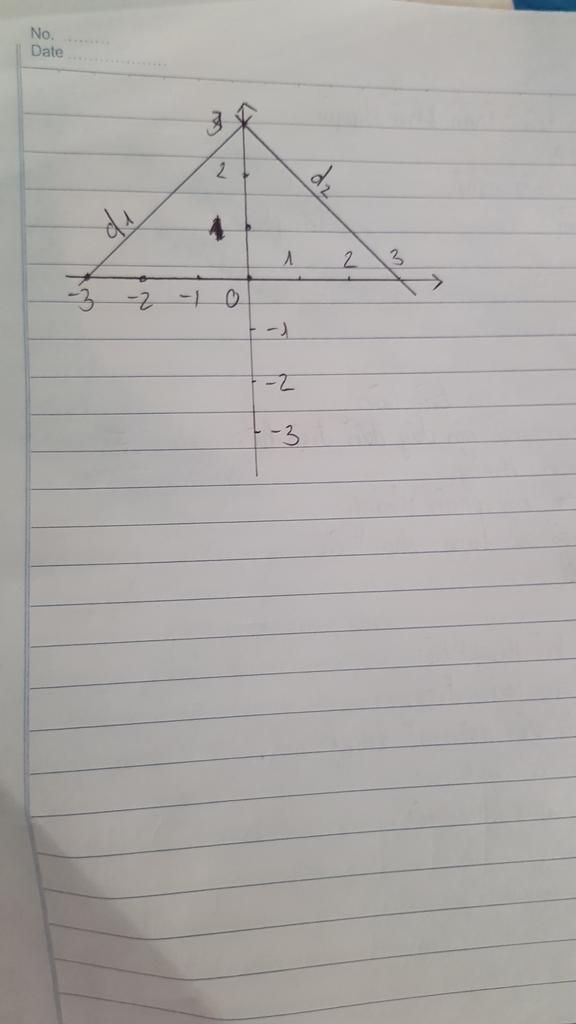 No. ..........
Date ....................
3
2
d2
d1
1
1 2 3
-3 -2 -1 0
-1
-2
-3